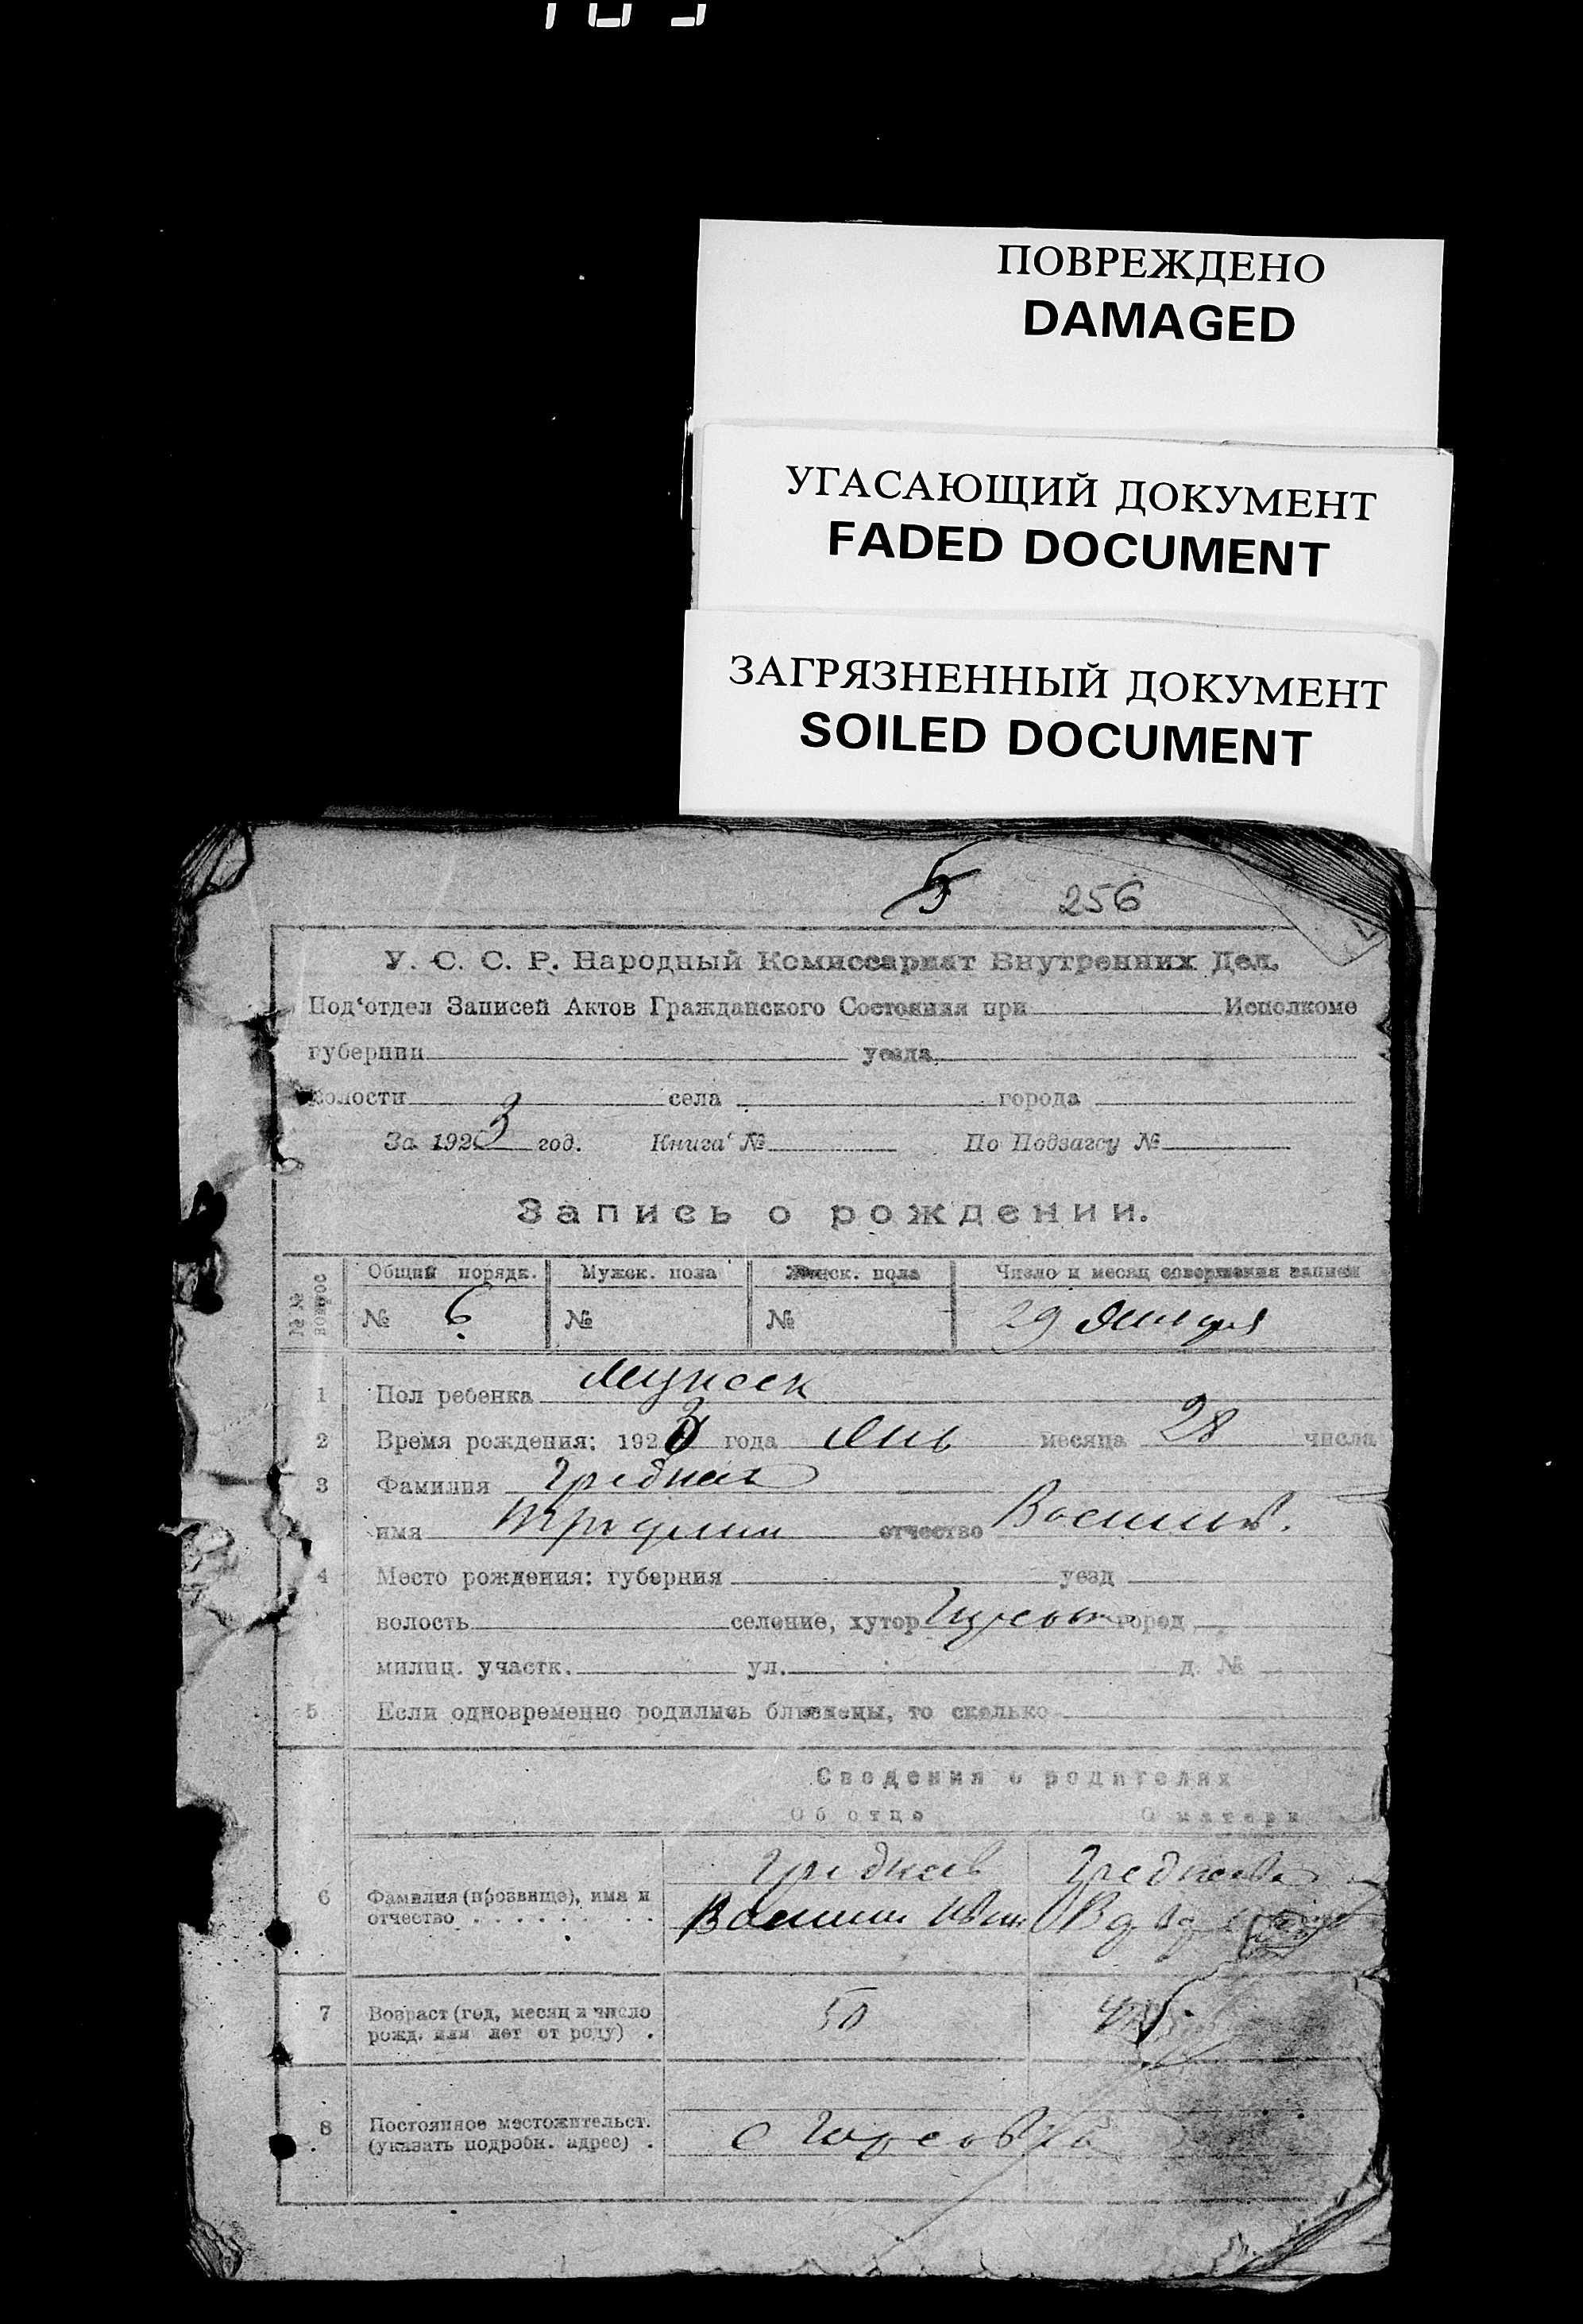 ПОВРЕЖДЕНО
DAMAGED
УГАСАЮЩИЙ ДОКУМЕНТ
FADED DOCUMENT
ЗАГРЯЗНЕННЫЙ ДОКУМЕНТ
SOILED DOCUMENT
5 256
У. С. С. Р. Народный Комиссариат Внутренних Дел.
Под'отдел Записей Актов Гражданского Состояния при Исполкоме
губернии уезда
волости села города
За 1923 год. Книга № По Подзагсу №
Запись о рождении.
№№ вопрос Общий порядк. Мужск. пола Женск. пола Число и месяц совершения записи
№ 6 № № 29 Января
1 Пол ребенка Мужск
2 Время рождения: 1923 года Янв месяца 28 числа
3 Фамилия
имя отчество
4 Место рождения: губерния уезд
волость селение, хутор город
милиц. участк. ул. д. №
5 Если одновременно родились близнецы, то сколько
Сведения о родителях
Об отце О матери
6 Фамилия (прозвище), имя и
отчество
7 Возраст (год, месяц и число 50
рожд. или лет от роду)
8 Постоянное местожительст.
(указать подробн. адрес) с